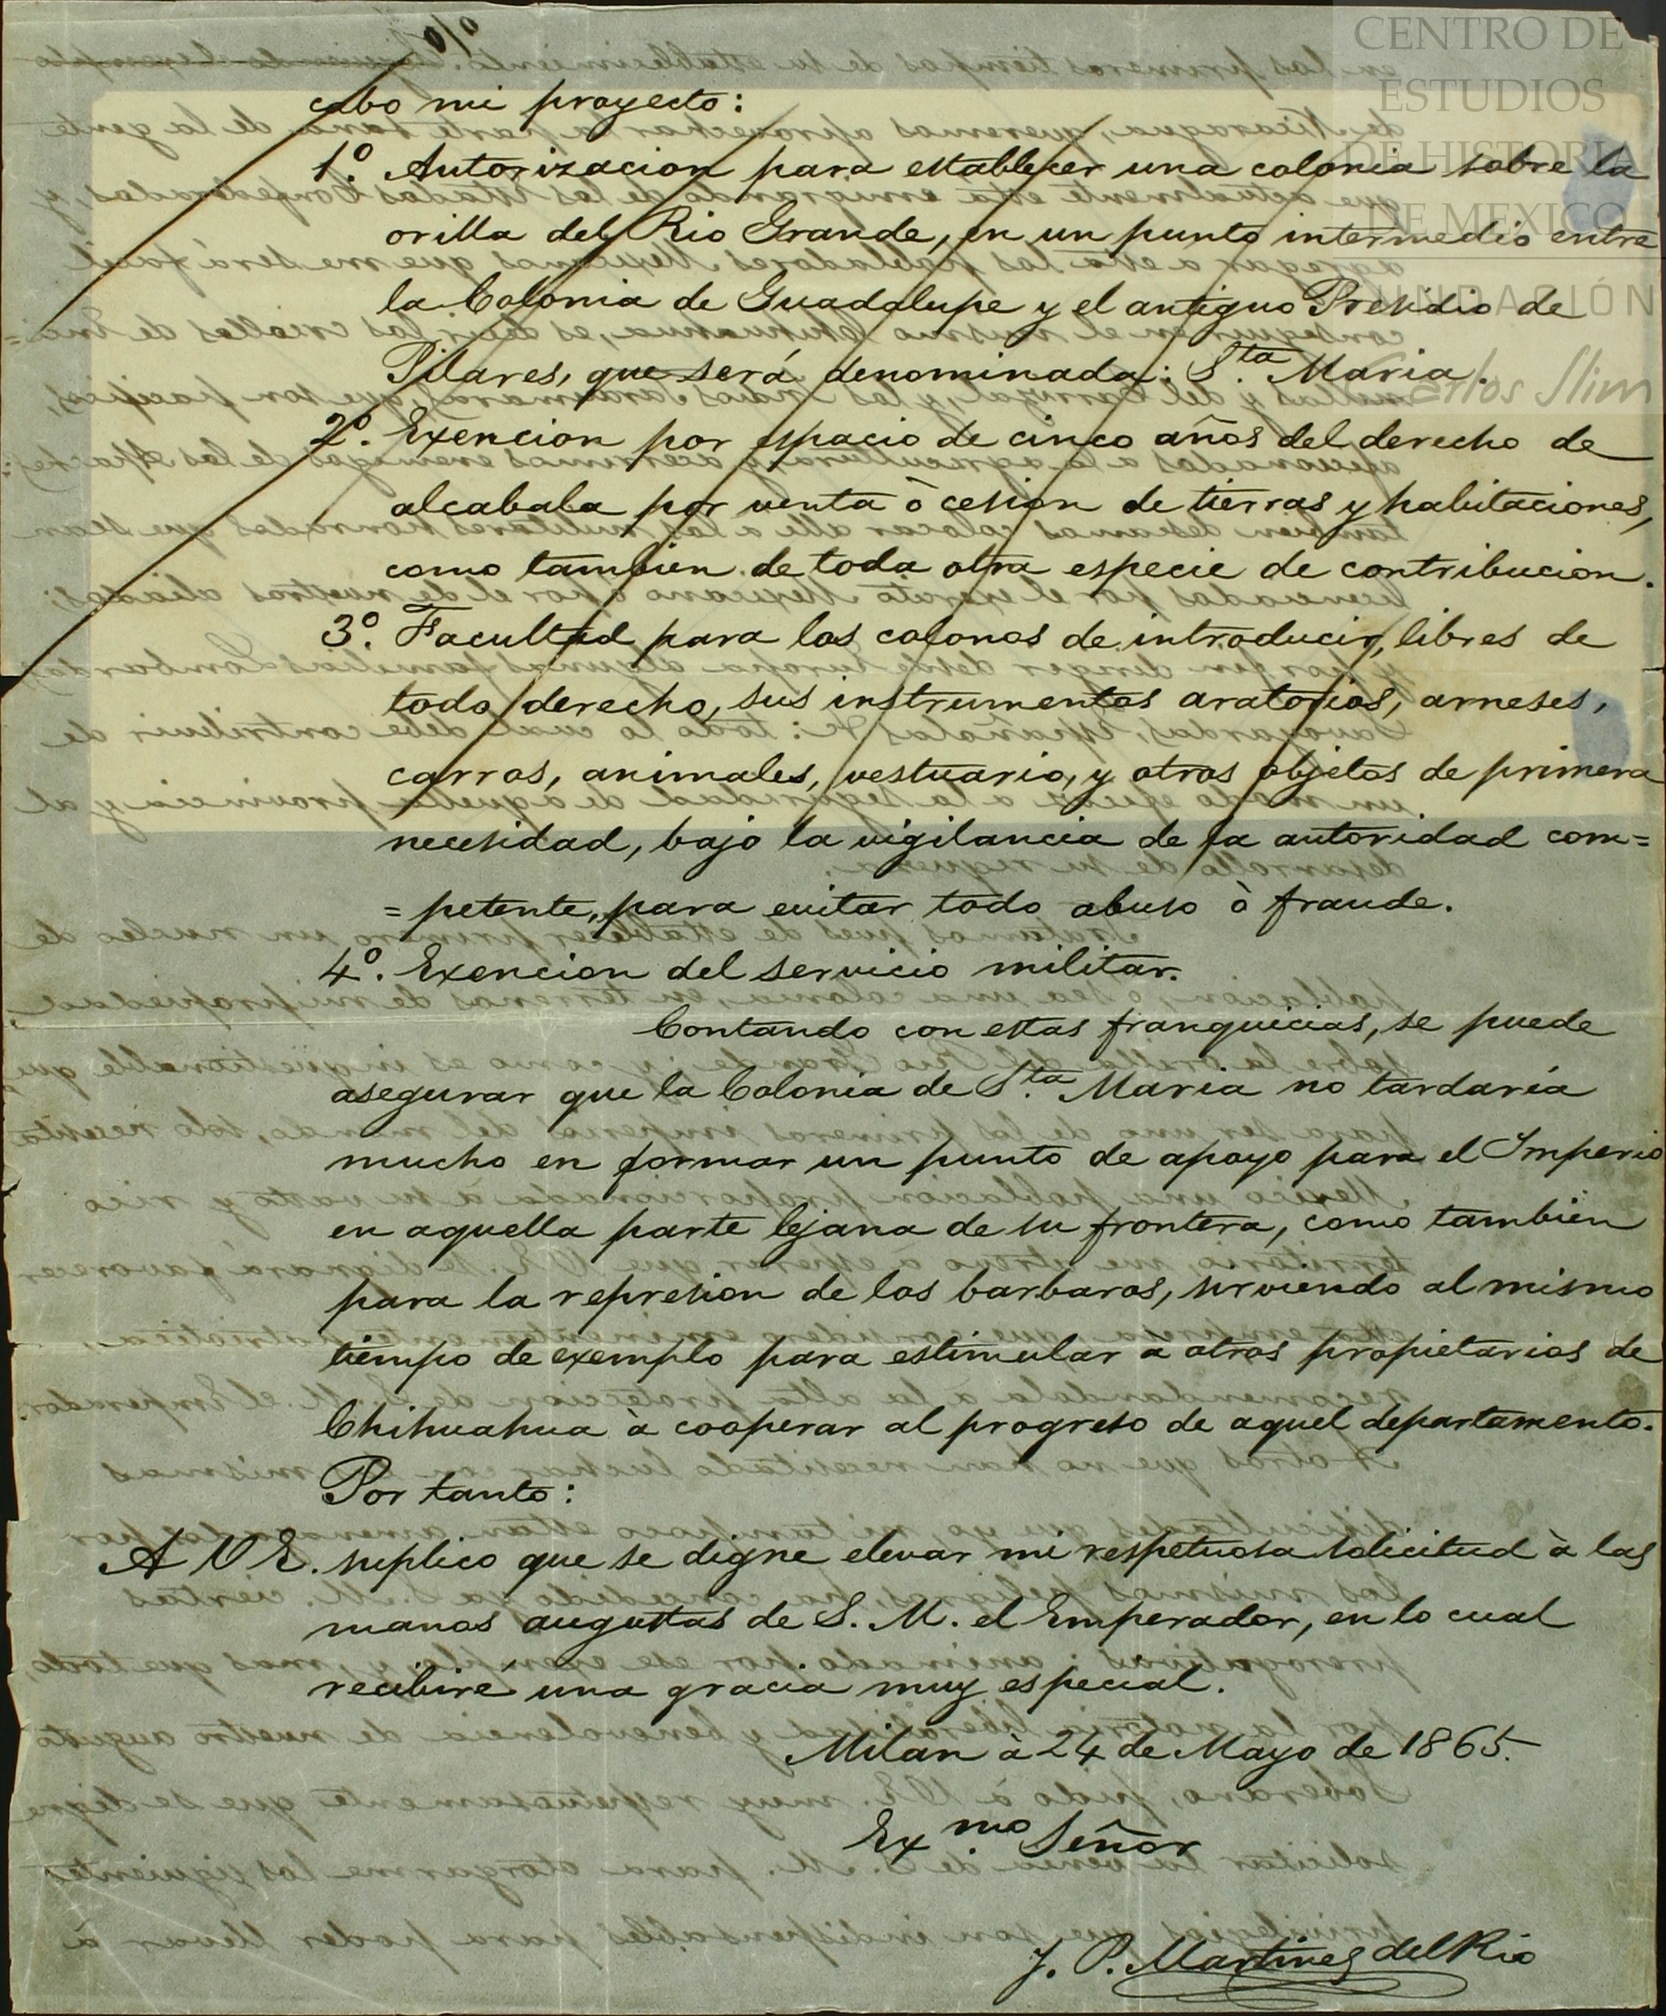 cabo mi proyecto:
1º. Autorizacion para establecer una colonia sobre la
orilla del Rio Grande, en un punto intermedio entre
la Colonia de Guadalupe y el antiguo Presidio de
Pilares, que será denominada: S.ta Maria.
2º. Exencion por espacio de cinco años del derecho de
alcabala por venta ò cesion de tierras y habitaciones,
como tambien de toda otra especie de contribucion.
3º. Facultad para los colonos de introducir, libres de
todo derecho, sus instrumentos aratorios, arneses,
carros, animales, vestuario, y otros objetos de primera
necesidad, bajo la vigilancia de la autoridad com=
=petente, para evitar todo abuso ò fraude.
4º. Exencion del servicio militar.
Contando con estas franquicias, se puede
asegurar que la Colonia de S.ta Maria no tardaria
mucho en formar un punto de apoyo para el Imperio
en aquella parte lejana de su frontera, como tambien
para la represion de los barbaros, sirviendo al mismo
tiempo de exemplo para estimular à otros propietarios de
Chihuahua à cooperar al progreso de aquel departamento.
Por tanto:
A V E. suplico que se digne elevar mi respetuosa solicitud à las
manos augustas de S. M. el Emperador, en lo cual
recibiré una gracia muy especial.
Milan à 24 de Mayo de 1865.
Ex.mo Señor
J. P. Martinez del Rio
CENTRO DE
ESTUDIOS
DE HISTORIA
DE MEXICO
FUNDACIÓN
Carlos Slim